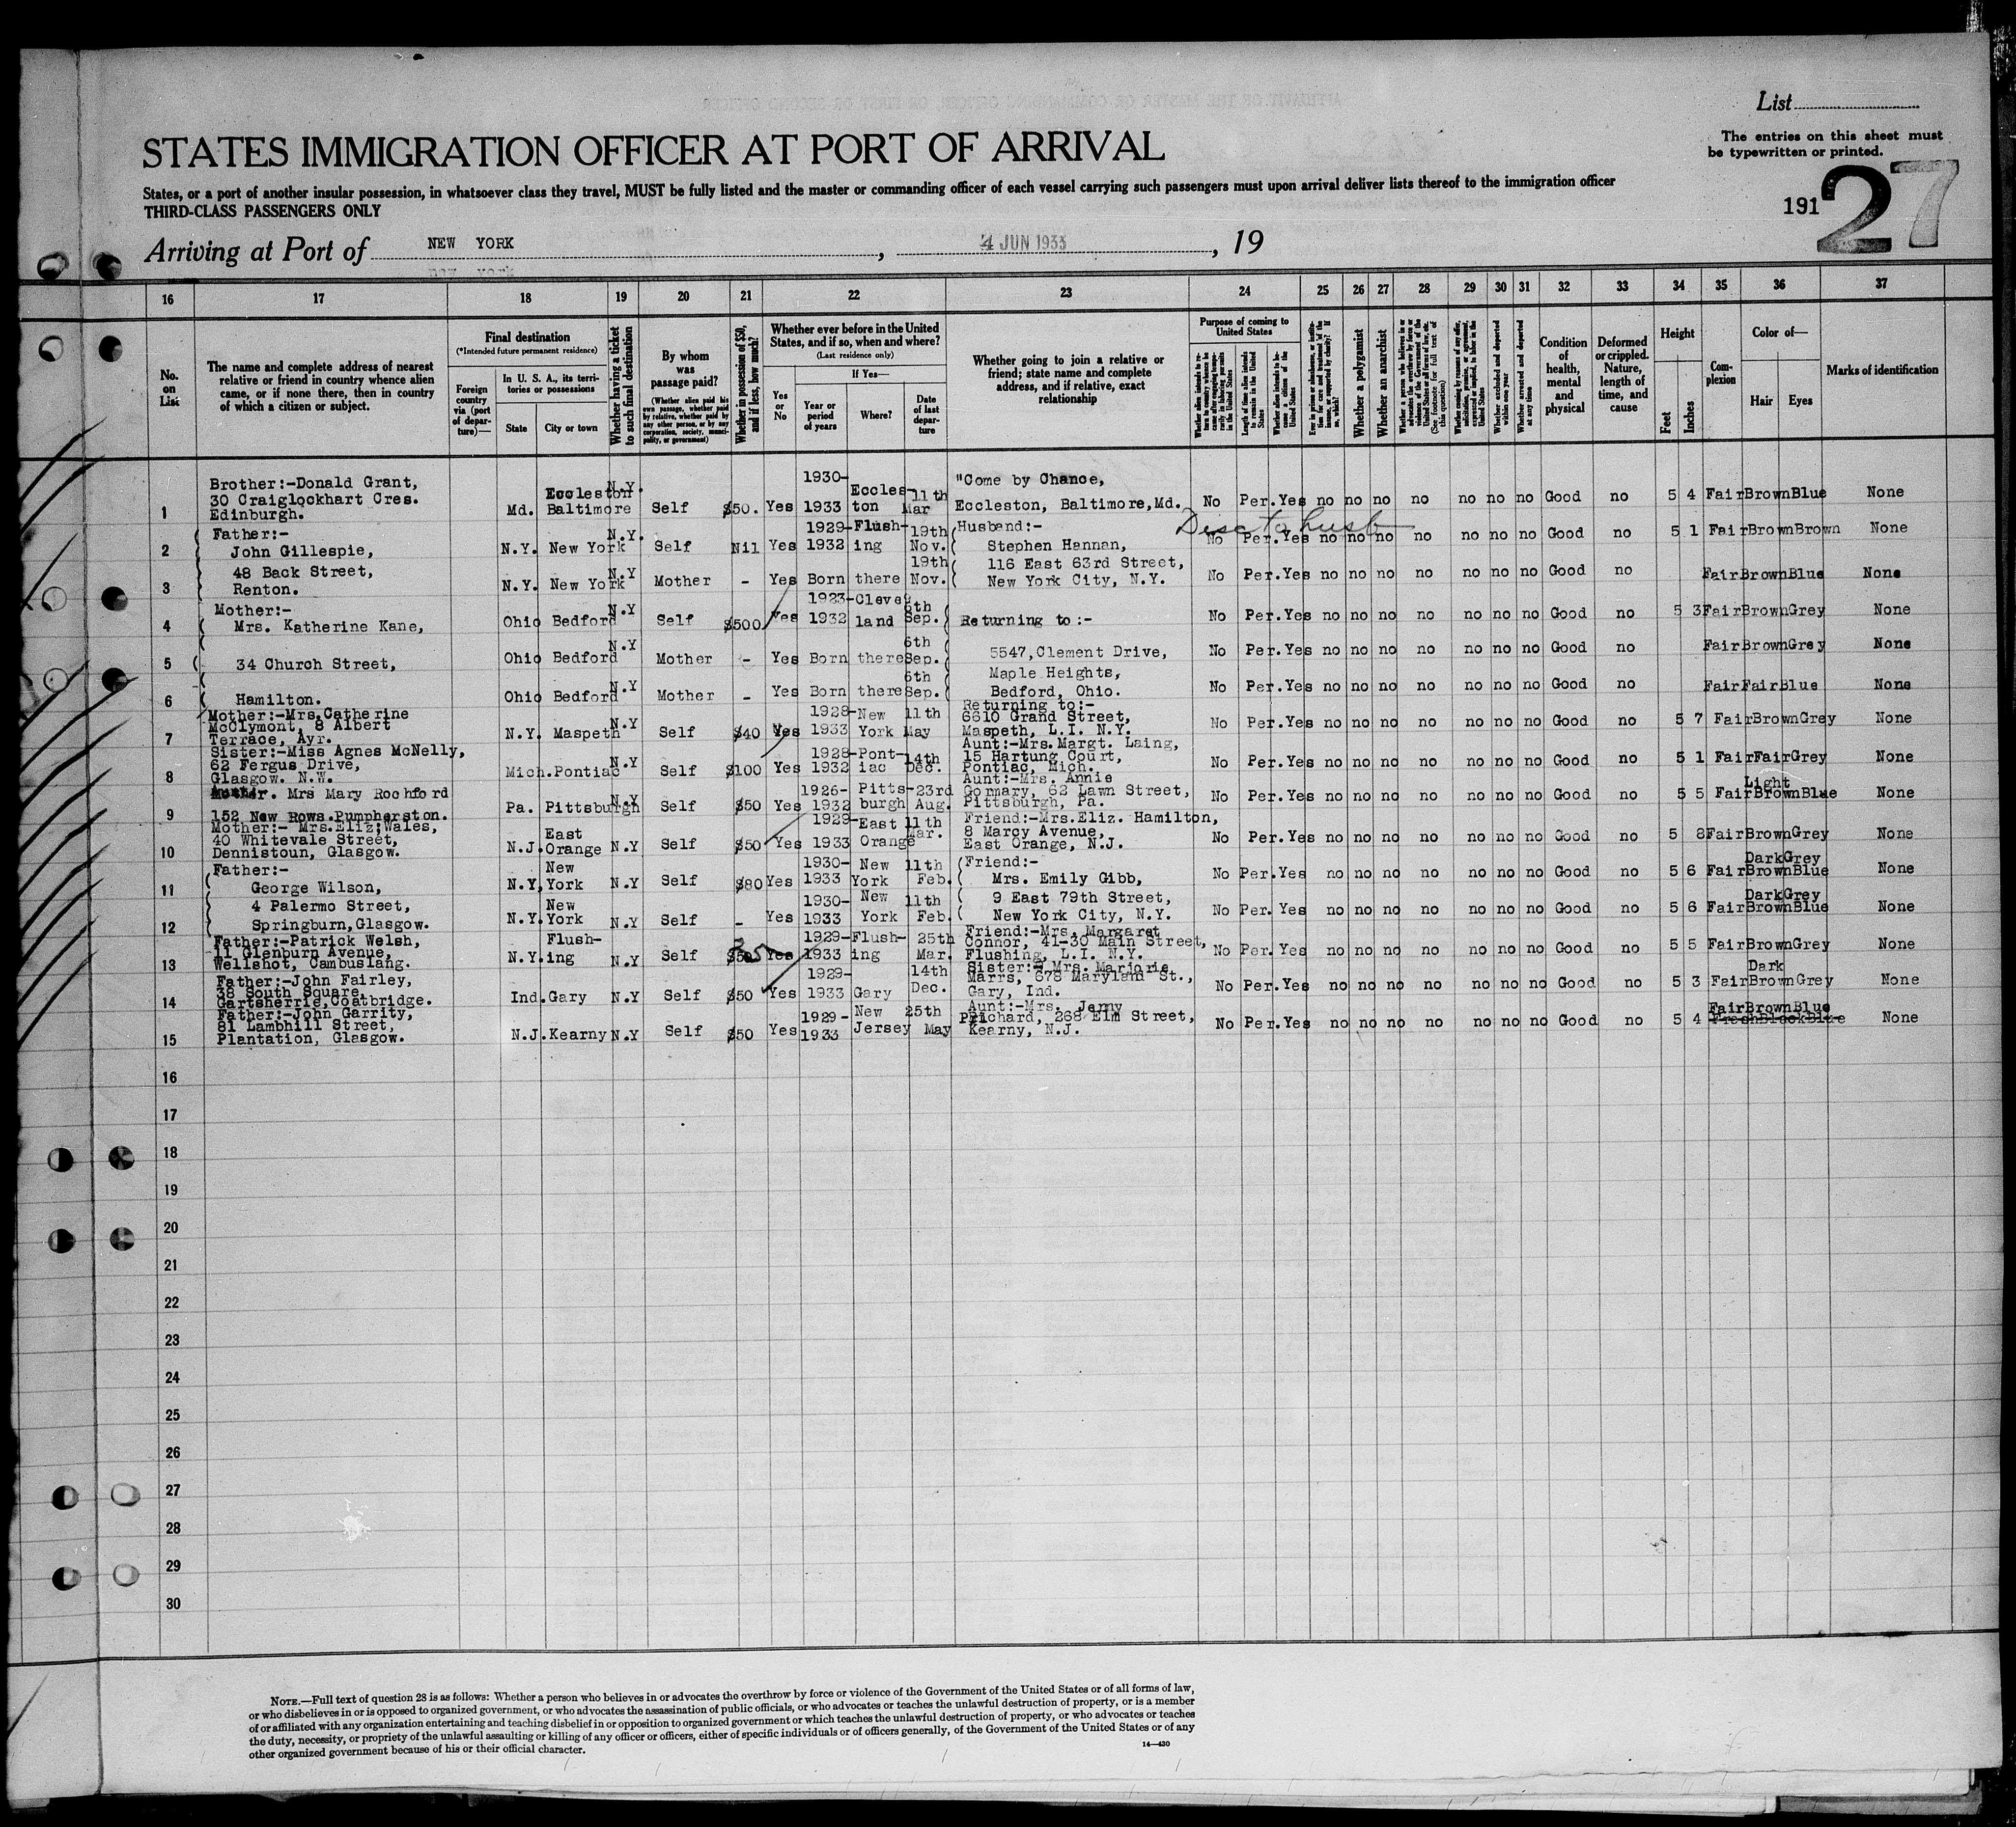 List
The entries on this sheet must
be typewritten or printed.
STATES IMMIGRATION OFFICER AT PORT OF ARRIVAL
States, or a port of another insular possession, in whatsoever class they travel, MUST be fully listed and the master or commanding officer of each vessel carrying such passengers must upon arrival deliver lists thereof to the immigration officer
THIRD-CLASS PASSENGERS ONLY
191
27
Arriving at Port of NEW YORK, 4 JUN 1933, 19
16 17 18 19 20 21 22 23 24 25 26 27 28 29 30 31 32 33 34 35 36 37
No. on List
The name and complete address of nearest
relative or friend in country whence alien
came, or if none there, then in country
of which a citizen or subject.
Final destination
(*Intended future permanent residence)
Foreign country via (port of departure)—
In U. S. A., its territories or possessions
State
City or town
Whether having a ticket to such final destination
By whom was passage paid?
(Whether alien paid his own passage, whether paid by relative, whether paid by any other person, or by any corporation, society, municipality, or government)
Whether in possession of $50, and if less, how much?
Whether ever before in the United
States, and if so, when and where?
(Last residence only)
Yes or No
If Yes—
Year or period of years
Where?
Date of last departure
Whether going to join a relative or
friend; state name and complete
address, and if relative, exact
relationship
Purpose of coming to United States
Length of time alien intends to remain in the United States
Whether alien intends to become a citizen of the United States
Whether a polygamist
Whether an anarchist
Whether excluded and deported within one year
Whether arrested and deported at any time
Condition of health, mental and physical
Deformed or crippled. Nature, length of time, and cause
Height
Feet
Inches
Complexion
Color of—
Hair
Eyes
Marks of identification
1 Brother:-Donald Grant, 30 Craiglockhart Cres. Edinburgh. Md. Eccleston Baltimore N.Y. Self $50. Yes 1930-1933 Eccles-ton 11th Mar "Come by Chance, Eccleston, Baltimore,Md. No Per. Yes no no no no no no no Good no 5 4 Fair Brown Blue None
Desc to husb
2 Father:- John Gillespie, N.Y. New York N.Y. Self Nil Yes 1929-1932 Flush-ing 19th Nov. Husband:- Stephen Hannan, No Per. Yes no no no no no no no Good no 5 1 Fair Brown Brown None
3 48 Back Street, Renton. N.Y. New York N.Y Mother - Yes Born there 19th Nov. 116 East 63rd Street, New York City, N.Y. No Per. Yes no no no no no no no Good no Fair Brown Blue None
4 Mother:- Mrs. Katherine Kane, Ohio Bedford N.Y Self $500 Yes 1923-1932 Cleve land 6th Sep. Returning to:- No Per. Yes no no no no no no no Good no 5 3 Fair Brown Grey None
5 34 Church Street, Ohio Bedford N.Y Mother - Yes Born there 6th Sep. 5547,Clement Drive, No Per. Yes no no no no no no no Good no Fair Brown Grey None
6 Hamilton. Ohio Bedford N.Y Mother - Yes Born there 6th Sep. Maple Heights, Bedford, Ohio. No Per. Yes no no no no no no no Good no Fair Fair Blue None
7 Mother:-Mrs.Catherine McClymont, 8 Albert Terrace, Ayr. N.Y. Maspeth N.Y Self $40 Yes 1928-1933 New York 11th May Returning to:- 6610 Grand Street, Maspeth, L.I. N.Y. No Per. Yes no no no no no no no Good no 5 7 Fair Brown Grey None
8 Sister:-Miss Agnes McNelly, 62 Fergus Drive, Glasgow. N.W. Mich. Pontiac N.Y Self $100 Yes 1928-1932 Pont-iac 14th Dec. Aunt:-Mrs.Margt. Laing, 15 Hartung Court, Pontiac, Mich. No Per. Yes no no no no no no no Good no 5 1 Fair Fair Grey None
9 Mother. Mrs Mary Rochford 152 New Rows.Pumpherston. Pa. Pittsburgh N.Y Self $50 Yes 1926-1932 Pitts-burgh 23rd Aug. Aunt:-Mrs. Annie Gormary, 62 Lawn Street, Pittsburgh, Pa. No Per. Yes no no no no no no no Good no 5 5 Fair Light Brown Blue None
10 Mother:- Mrs.Eliz;Wales, 40 Whitevale Street, Dennistoun, Glasgow. N.J. East Orange N.Y Self $50 Yes 1929-1933 East Orange 11th Mar. Friend:-Mrs.Eliz. Hamilton, 8 Marcy Avenue, East Orange, N.J. No Per. Yes no no no no no no no Good no 5 8 Fair Brown Grey None
11 Father:- George Wilson, N.Y. New York N.Y Self $80 Yes 1930-1933 New York 11th Feb. Friend:- Mrs. Emily Gibb, No Per. Yes no no no no no no no Good no 5 6 Fair Dark Brown Grey Blue None
12 4 Palermo Street, Springburn,Glasgow. N.Y. New York N.Y Self - Yes 1930-1933 New York 11th Feb. 9 East 79th Street, New York City, N.Y. No Per. Yes no no no no no no no Good no 5 6 Fair Dark Brown Grey Blue None
13 Father:-Patrick Welsh, 11 Glenburn Avenue, Wellshot, Cambuslang. N.Y. Flush-ing N.Y Self $50 35 Yes 1929-1933 Flush-ing 25th Mar. Friend:-Mrs. Margaret Connor, 41-30 Main Street, Flushing, L.I. N.Y. No Per. Yes no no no no no no no Good no 5 5 Fair Brown Grey None
14 Father:-John Fairley, 38 South Square, Gartsherrie,Coatbridge. Ind. Gary N.Y Self $50 Yes 1929-1933 Gary 14th Dec. Sister:- Mrs. Marjorie Marrs, 678 Maryland St., Gary, Ind. No Per. Yes no no no no no no no Good no 5 3 Fair Dark Brown Grey None
15 Father:-John Garrity, 81 Lambhill Street, Plantation, Glasgow. N.J. Kearny N.Y Self $50 Yes 1929-1933 New Jersey 25th May Aunt:-Mrs. Jenny Prichard, 268 Elm Street, Kearny, N.J. No Per. Yes no no no no no no no Good no 5 4 Fair Brown Blue Fresh Black Blue None
16
17
18
19
20
21
22
23
24
25
26
27
28
29
30
NOTE.—Full text of question 28 is as follows: Whether a person who believes in or advocates the overthrow by force or violence of the Government of the United States or of all forms of law,
or who disbelieves in or is opposed to organized government, or who advocates the assassination of public officials, or who advocates or teaches the unlawful destruction of property, or is a member
of or affiliated with any organization entertaining and teaching disbelief in or opposition to organized government or which teaches the unlawful destruction of property, or who advocates or teaches
the duty, necessity, or propriety of the unlawful assaulting or killing of any officer or officers, either of specific individuals or of officers generally, of the Government of the United States or of any
other organized government because of his or their official character.
14—430